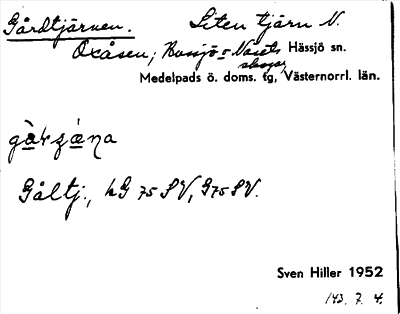 Gårdtjärnen. Liten tjärn N.
Oxåsen; Hässjö sn.
Medelpads ö. doms. tg, Västernorrl. län.
Gåltj., kG 75 SV, G75 SV.
Sven Hiller 1952
143. 7. 4.